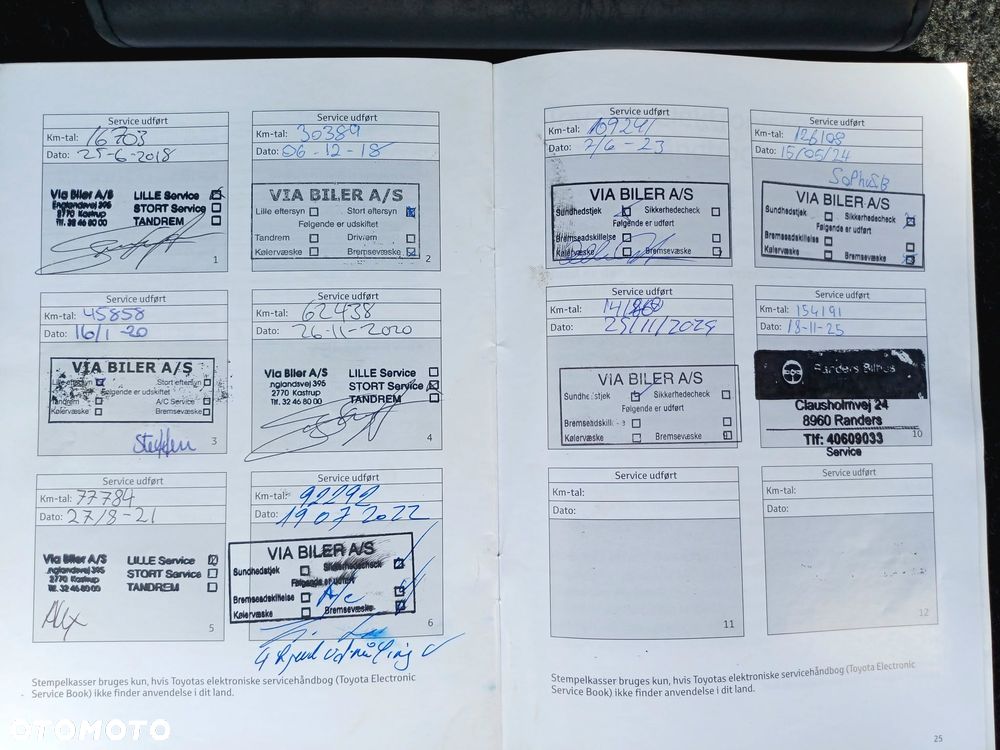 Service udført
Km-tal: 16703
Dato: 25-6-2018
Via Biler A/S
Englandsvej 395
2770 Kastrup
Tlf. 32 46 80 00
LILLE Service
STORT Service
TANDREM
1
Service udført
Km-tal: 30389
Dato: 06-12-18
VIA BILER A/S
Lille eftersyn Stort eftersyn
Følgende er udskiftet
Tandrem Drivrem
Kølervæske Bremsevæske
2
Service udført
Km-tal: 45858
Dato: 16/1-20
VIA BILER A/S
Lille eftersyn Stort eftersyn
Følgende er udskiftet
Tandrem A/C Service
Kølervæske Bremsevæske
3
Service udført
Km-tal: 62438
Dato: 26-11-2020
Via Biler A/S
nglandsvej 395
2770 Kastrup
Tlf. 32 46 80 00
LILLE Service
STORT Service
TANDREM
4
Service udført
Km-tal: 77784
Dato: 27/8-21
Via Biler A/S
nglandsvej 395
2770 Kastrup
lf. 32 46 80 00
LILLE Service
STORT Service
TANDREM
5
Service udført
Km-tal: 92292
Dato: 19 07 2022
VIA BILER A/S
Sundhedstjek Sikkerhedscheck
Følgende er udført
Bremseadskillelse A/C
Kølervæske Bremsevæske
6
4 hjuls udmåling
Stempelkasser bruges kun, hvis Toyotas elektroniske servicehåndbog (Toyota Electronic
Service Book) ikke finder anvendelse i dit land.
Service udført
Km-tal: 109241
Dato: 2/6-23
VIA BILER A/S
Sundhedstjek Sikkerhedscheck
Følgende er udført
Bremseadskillelse
Kølervæske Bremsevæske
Service udført
Km-tal: 126198
Dato: 15/05/24
VIA BILER A/S
Sundhedstjek Sikkerhedscheck
Følgende er udført
Bremseadskillelse
Kølervæske Bremsevæske
Service udført
Km-tal:
Dato: 29/11/2024
VIA BILER A/S
Sikkerhedscheck
Følgende er udført
Kølervæske Bremsevæske
Service udført
Km-tal: 154191
Dato: 18-11-25
Randers Bilhus
Clausholmvej 24
8960 Randers
Tlf: 40609033
Service
10
Service udført
Km-tal:
Dato:
11
Service udført
Km-tal:
Dato:
12
Stempelkasser bruges kun, hvis Toyotas elektroniske servicehåndbog (Toyota Electronic
Service Book) ikke finder anvendelse i dit land.
25
OTOMOTO